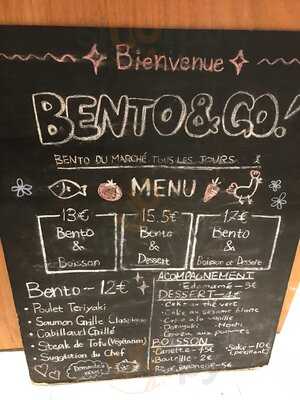 Bienvenue
BENTO&CO.!
BENTO DU MARCHÉ TOUS LES JOURS
MENU
13€
Bento
&
Boisson
15.5€
Bento
&
Dessert
17€
Bento
&
Boisson et Dessert
Bento - 12€
• Poulet Teriyaki
• Saumon Grillé
• Cabillaud Grillé
• Steak de Tofu (Végétarien)
• Suggestion du Chef
ACOMPAGNEMENT
Edamamé - 5€
DESSERT - 4€
- Cake au thé vert
- Cake au sésame
- Cake à la vanille
- Dorayaki - Mochi
BOISSON
Canette - 2
Bouteille - 2€
Saké - 10€